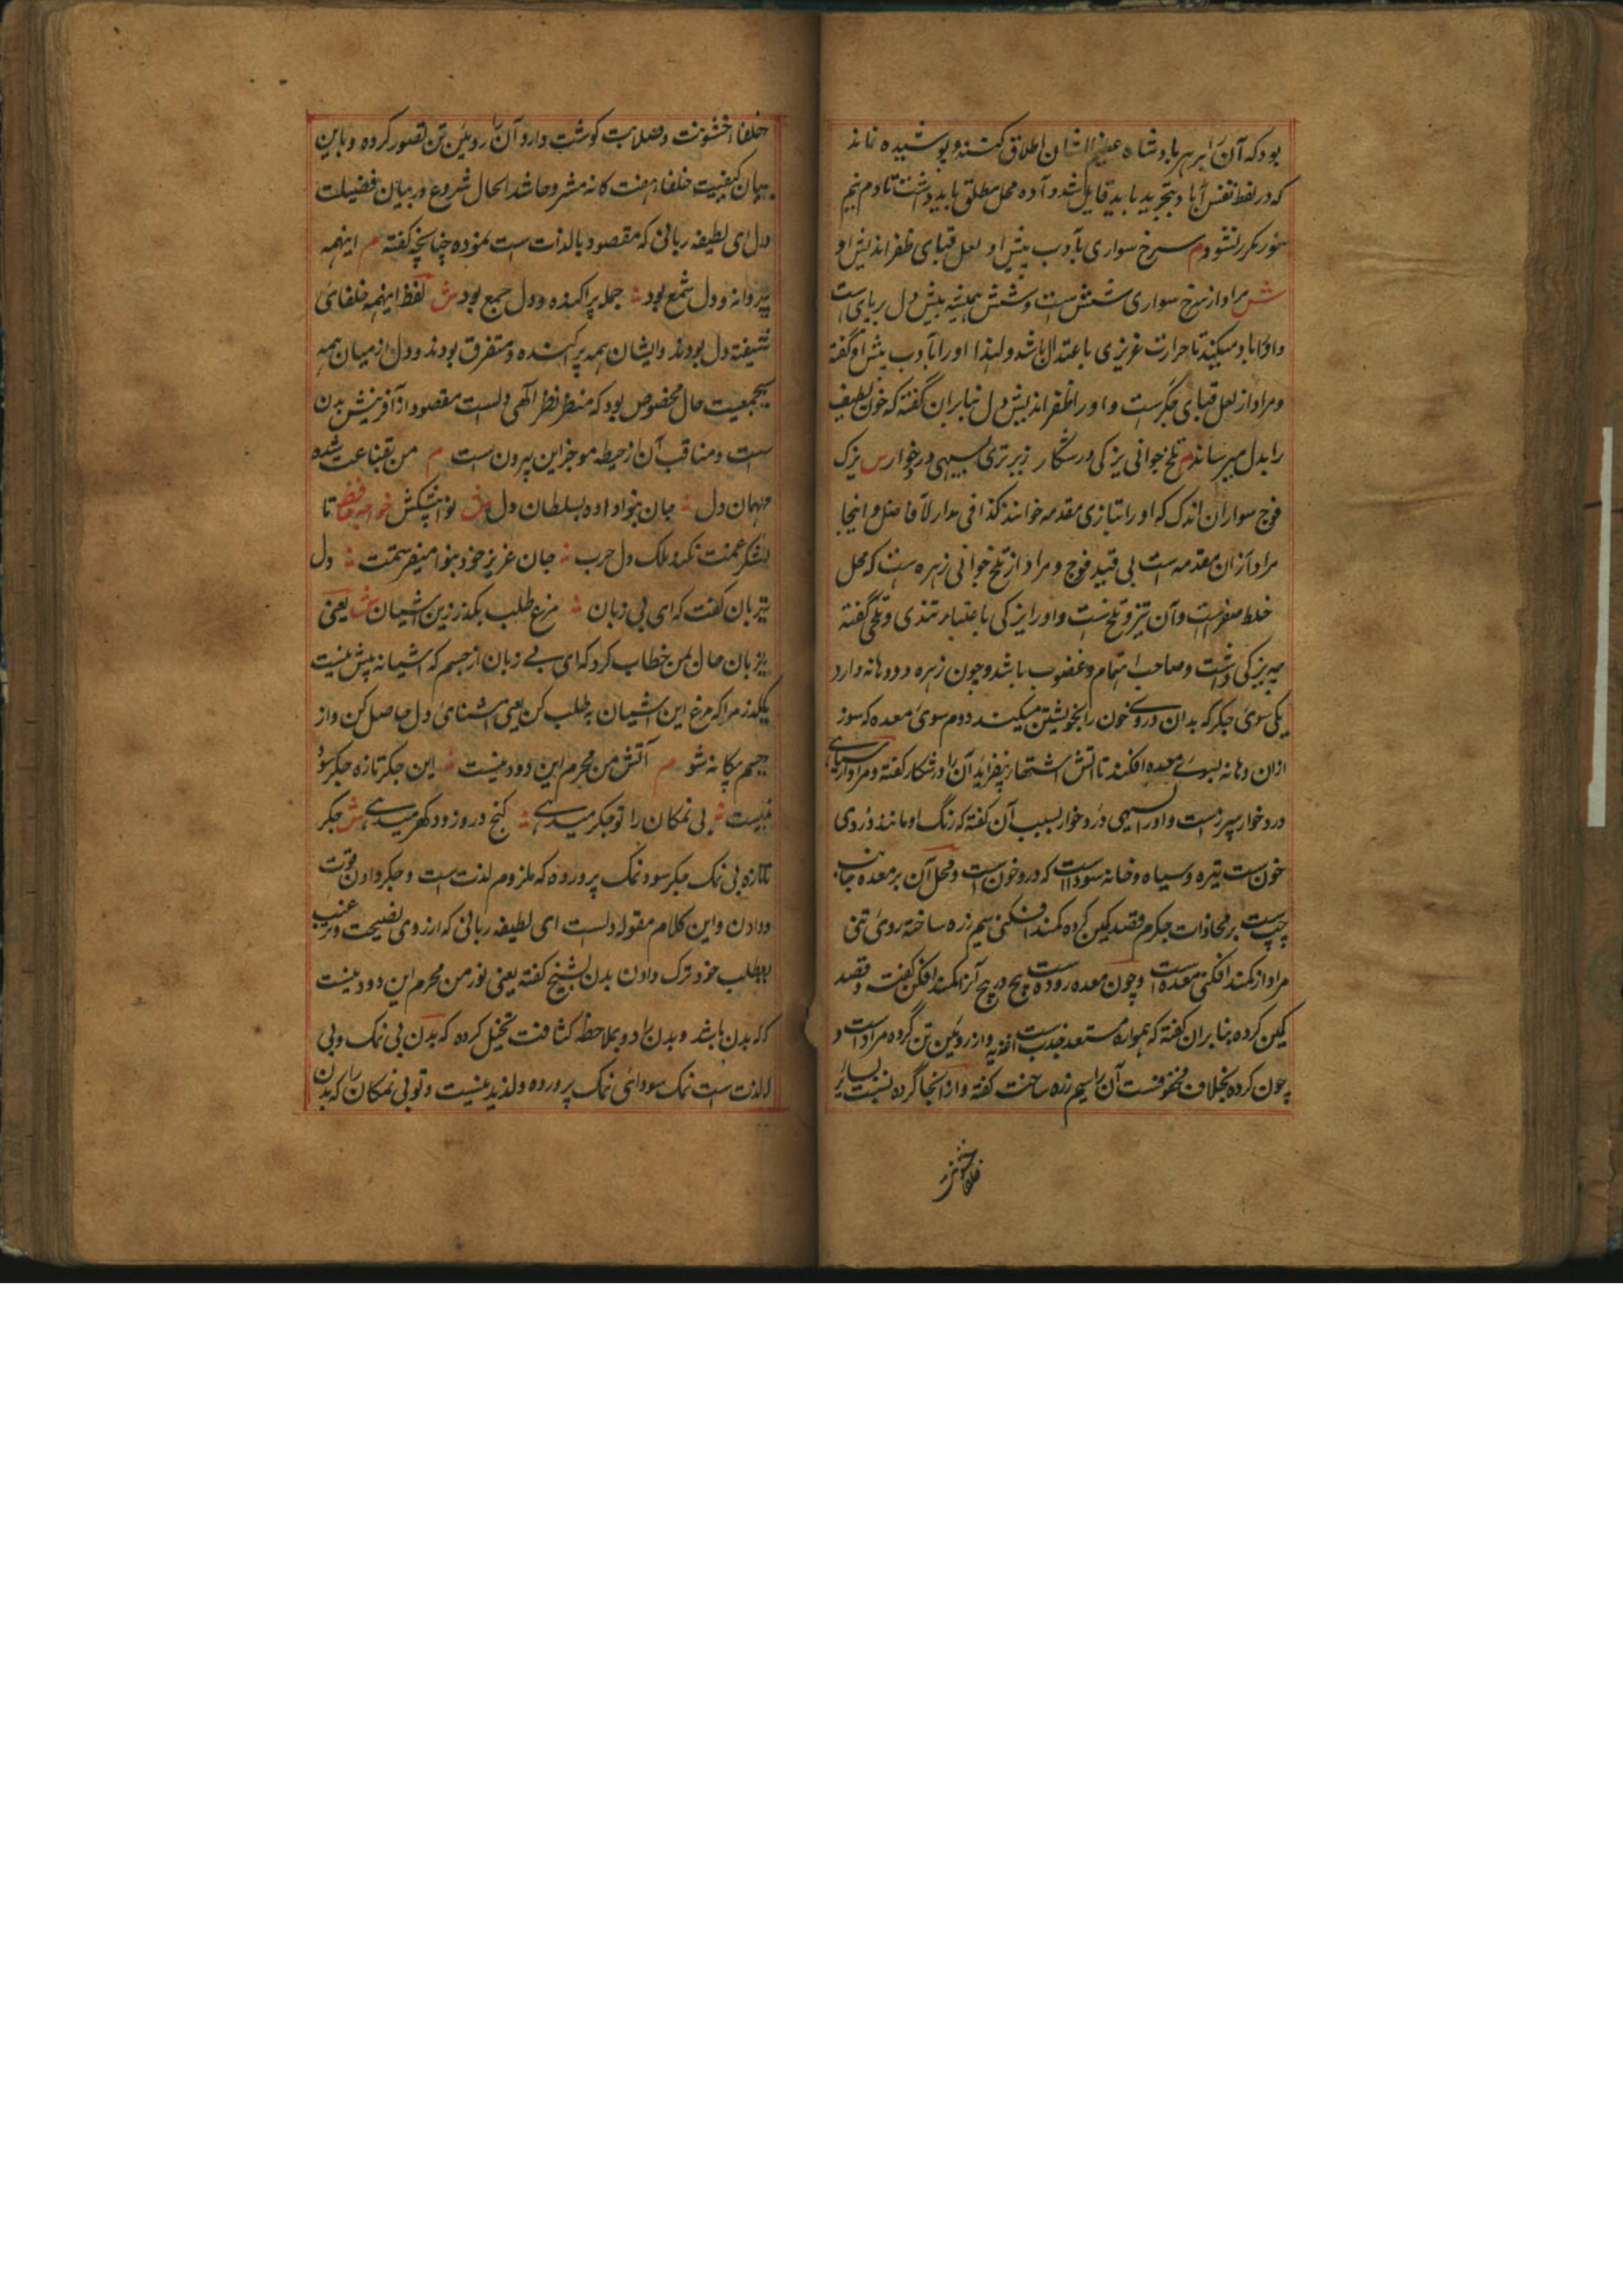 بود که آن را بر هر بادشاه عظیم الشان اطلاق کنند و پوشیده نماند
که در لفظ نفس آباد بتجرید باید قایل شد و آده محل مطلق باید داشت تا دم نیم
سوز مکرر نشود م سرخ سواری بادب پیش او لعل قبای ظفر اندیش او
ش مراد از سرخ سواری شش است و شش همیشه پیش دل بر پای است
و او را باد میکند تا حرارت غریزی با عتدال باشد و لهذا او را بادب پیش او گفته
و مراد از لعل قبای جگر است و او را ظفر اندیش دل بنا بران گفته که خون لطیف
را بدل میرساند م تلخ جوانی یزکی در شکار زیر تری سیهی درد خوار س یزک
فوج سواران اندک که او را بتازی مقدمه خوانند کذا فی مدار الافاضل و اینجا
مراد ازان مقدمه است بی قید فوج و مراد از تلخ جوانی زهره است که محل
خلط صفراست و آن تیز و تلخ است و او را یزکی باعتبار تندی و تلخی گفته
چه یزکی درشت و صاحب اهتمام و غضوب باشد و چون زهره دو دهانه دارد
یکی سوی جگر که بدان دروی خون را بخویشتن میکشد دوم سوی معده که سوز
ازان دهانه بسوی معده افکند تا آتش اشتها بیفزاید آن را در شکار گفته و مراد از سیاهی
درد خوار سپرز است و او را سیهی درد خوار بسبب آن گفته که رنگ او مانند دردی
خون است تیره و سیاه و خانه سودا است که درد خون است و محل آن بر معده جانب
چپ است بر محاذات جگر م قصد کمین کرده کمند افکنی سیم زره ساخته روی تنی
مراد از کمند افکنی معده است و چون معده روده است پیچ در پیچ آنرا کمند افکن گفته و قصد
کمین کرده بنا بران گفته که همواره مستعد جذب است اغذیه و از روئین تن گرده مراد است و
چون گرده بخلاف محفوفست آن را سیم زره ساخت گفته و از انجا گرده بنسبت سایر
خلفا خشونت
خلفا خشونت و صلابت گوشت دارد آن را روئین تن تصور کرده و باین
بیان کیفیت خلفاء هفت کانه مشروحا شد الحال شروع در بیان فضیلت
دل ای لطیفه ربانی که مقصود بالذات است نموده چنانچه گفته م اینهمه
پروانه و دل شمع بود جمله پراکنده و دل جمع بود ش لفظ اینهمه خلفای
شیفته دل بودند و ایشان همه پراکنده و متفرق بودند و دل از میان همه
بجمعیت حال مخصوص بود که منظر نظر الهی دلست مقصود از آفرینش بدن
است و مناقب آن از حیطه موجز این بیرون است م من بقناعت شده
مهمان دل جان بنوا داده بسلطان دل ش نوا پیشکش خواجه حافظ تا
لشکر غمت نکند ملک دل خراب جان عزیز خود بنوا میفرستمت دل
بزبان گفت که ای بی زبان مرغ طلب بگذر ازین آشیان ش یعنی
بزبان حال بمن خطاب کرد که ای بی زبان از جسم که آشیانه بیش نیست
بگذر مرا که مرغ این آشیان به طلب کن یعنی آشنای دل حاصل کن و از
جسم بیگانه شو م آتش من محرم این دود نیست این جگر تازه جگر سود
نیست بی نمکان را تو جگر میدهی گنج در و زود گهر میدهی ش جگر
تازه بی نمک جگر سود نمک پرورده که ملزوم لذت است و جگر دادن قوت
دادن و این کلام مقوله دلست ای لطیفه ربانی که از روی نصیحت و ترغیب
بطلب خود ترک دادن بدن بشیخ گفته یعنی نور من محرم این دود نیست
که بدن باشد و بدن را دود بملاحظه کثافت تخیل کرده که بدن بی نمک و بی
لذت است نمک سودای نمک پرورده و لذیذ نیست و تو بی نمکان را که بدن